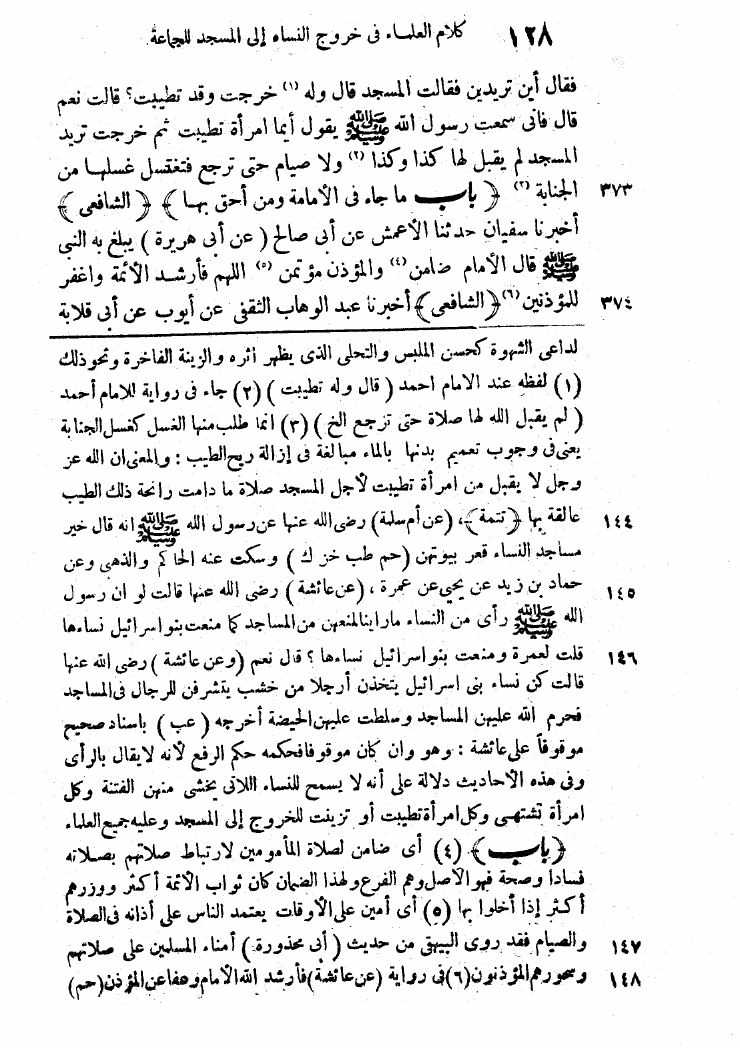 ١٢٨ كلام العلماء فى خروج النساء إلى المسجد للجماعة
فقال أين تريدين فقالت المسجد قال وله (١) خرجت وقد تطيبت؟ قالت نعم
قال فانى سمعت رسول الله ﷺ يقول أيما امرأة تطيبت ثم خرجت تريد
المسجد لم يقبل لها كذا وكذا (٢) ولا صيام حتى ترجع فتغتسل غسلها من
٣٧٣ الجنابة (٣) ﴿ باب ما جاء فى الامامة ومن أحق بها ﴾ ﴿ الشافعى ﴾
أخبرنا سفيان حدثنا الأعمش عن أبى صالح ( عن أبى هريرة ) يبلغ به النبى
ﷺ قال الامام ضامن (٤) والمؤذن مؤتمن (٥) اللهم فأرشد الأئمة واغفر
٣٧٤ للمؤذنين (٦) ﴿ الشافعى ﴾ أخبرنا عبد الوهاب الثقفى عن أيوب عن أبى قلابة
لداعى الشهوة كحسن الملبس والتحلى الذى يظهر اثره والزينة الفاخرة ونحو ذلك
(١) لفظه عند الامام احمد ( قال وله تطيبت ) (٢) جاء فى رواية للامام أحمد
( لم يقبل الله لها صلاة حتى ترجع الخ ) (٣) انما طلب منها الغسل كغسل الجنابة
يعنى فى وجوب تعميم بدنها بالماء مبالغة فى إزالة ريح الطيب : والمعنى ان الله عز
وجل لا يقبل من امرأة تطيبت لأجل المسجد صلاة ما دامت رائحة ذلك الطيب
١٤٤ عالقة بها ﴿ تتمة ﴾، (عن أم سلمة) رضى الله عنها عن رسول الله ﷺ انه قال خير
مساجد النساء قعر بيوتهن ( حم طب خز ك ) وسكت عنه الحاكم والذهبى وعن
١٤٥ حماد بن زيد عن يحيى عن عمرة ، (عن عائشة ) رضى الله عنها قالت لو ان رسول
الله ﷺ رأى من النساء ما راينا لمنعهن من المساجد كما منعت بنو اسرائيل نساءها
١٤٦ قلت لعمرة ومنعت بنو اسرائيل نساءها ؟ قال نعم (وعن عائشة ) رضى الله عنها
قالت كن نساء بنى اسرائيل يتخذن أرجلا من خشب يتشرفن للرجال فى المساجد
فحرم الله عليهن المساجد وسلطت عليهن الحيضة أخرجه ( عب ) باسناد صحيح
موقوفاً على عائشة : وهو وان كان موقوفا فحكمه حكم الرفع لأنه لا يقال بالرأى
وفى هذه الأحاديث دلالة على أنه لا يسمح للنساء اللاتى يخشى منهن الفتنة وكل
امرأة تشتهى وكل امرأة تطيبت أو تزينت للخروج إلى المسجد وعليه جميع العلماء
﴿ باب ﴾ (٤) أى ضامن لصلاة المأمومين لارتباط صلاتهم بصلاته
فسادا وصحة فهو الأصل وهم الفرع ولهذا الضمان كان ثواب الأئمة أكثر ووزرهم
أكثر إذا أخلوا بها (٥) أى أمين على الأوقات يعتمد الناس على أذانه فى الصلاة
١٤٧ والصيام فقد روى البيهقى من حديث ( أبى محذورة ) أمناء المسلمين على صلاتهم
١٤٨ وسحورهم المؤذنون (٦) فى رواية (عن عائشة) فأرشد الله الأمام وعفا عن المؤذن (حم)